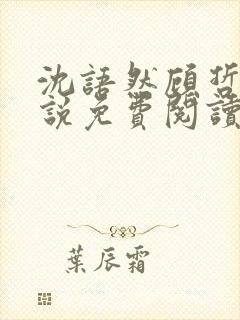 沈語然顧哲
說免費閱讀
葉辰霜